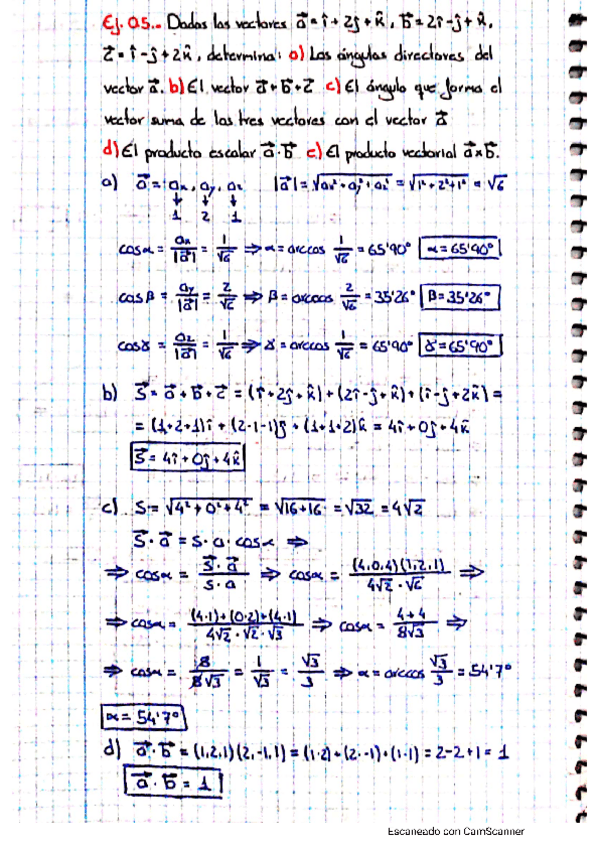 Ej. 05.- Dados los vectores a⃗ = î + 2ĵ + k̂, b⃗ = 2î - ĵ + k̂,
c⃗ = î - ĵ + 2k̂, determina: a) Los ángulos directores del
vector a⃗. b) El vector a⃗ + b⃗ + c⃗ c) El ángulo que forma el
vector suma de los tres vectores con el vector a⃗
d) El producto escalar a⃗ · b⃗ e) El producto vectorial a⃗ × b⃗.
a) a⃗ = ax, ay, az |a⃗| = √(ax² + ay² + az²) = √(1² + 2² + 1²) = √6
↓ ↓ ↓
1 2 1
cosα = ax/|a⃗| = 1/√6 ⇒ α = arccos 1/√6 = 65'90° α = 65'90°
cosβ = ay/|a⃗| = 2/√6 ⇒ β = arccos 2/√6 = 35'26° β = 35'26°
cosγ = az/|a⃗| = 1/√6 ⇒ γ = arccos 1/√6 = 65'90° γ = 65'90°
b) S⃗ = a⃗ + b⃗ + c⃗ = (î + 2ĵ + k̂) + (2î - ĵ + k̂) + (î - ĵ + 2k̂) =
= (1+2+1)î + (2-1-1)ĵ + (1+1+2)k̂ = 4î + 0ĵ + 4k̂
S⃗ = 4î + 0ĵ + 4k̂
c) S = √(4² + 0² + 4²) = √(16+16) = √32 = 4√2
S⃗ · a⃗ = s · a · cosα ⇒
⇒ cosα = S⃗ · a⃗ / s · a ⇒ cosα = (4,0,4)(1,2,1) / 4√2 · √6 ⇒
⇒ cosα = (4·1)+(0·2)+(4·1) / 4√2 · √2 · √3 ⇒ cosα = 4+4 / 8√3 ⇒
⇒ cosα = 8/8√3 = 1/√3 = √3/3 ⇒ α = arccos √3/3 = 54'7°
α = 54'7°
d) a⃗ · b⃗ = (1,2,1)(2,-1,1) = (1·2)+(2·-1)+(1·1) = 2-2+1 = 1
a⃗ · b⃗ = 1
Escaneado con CamScanner